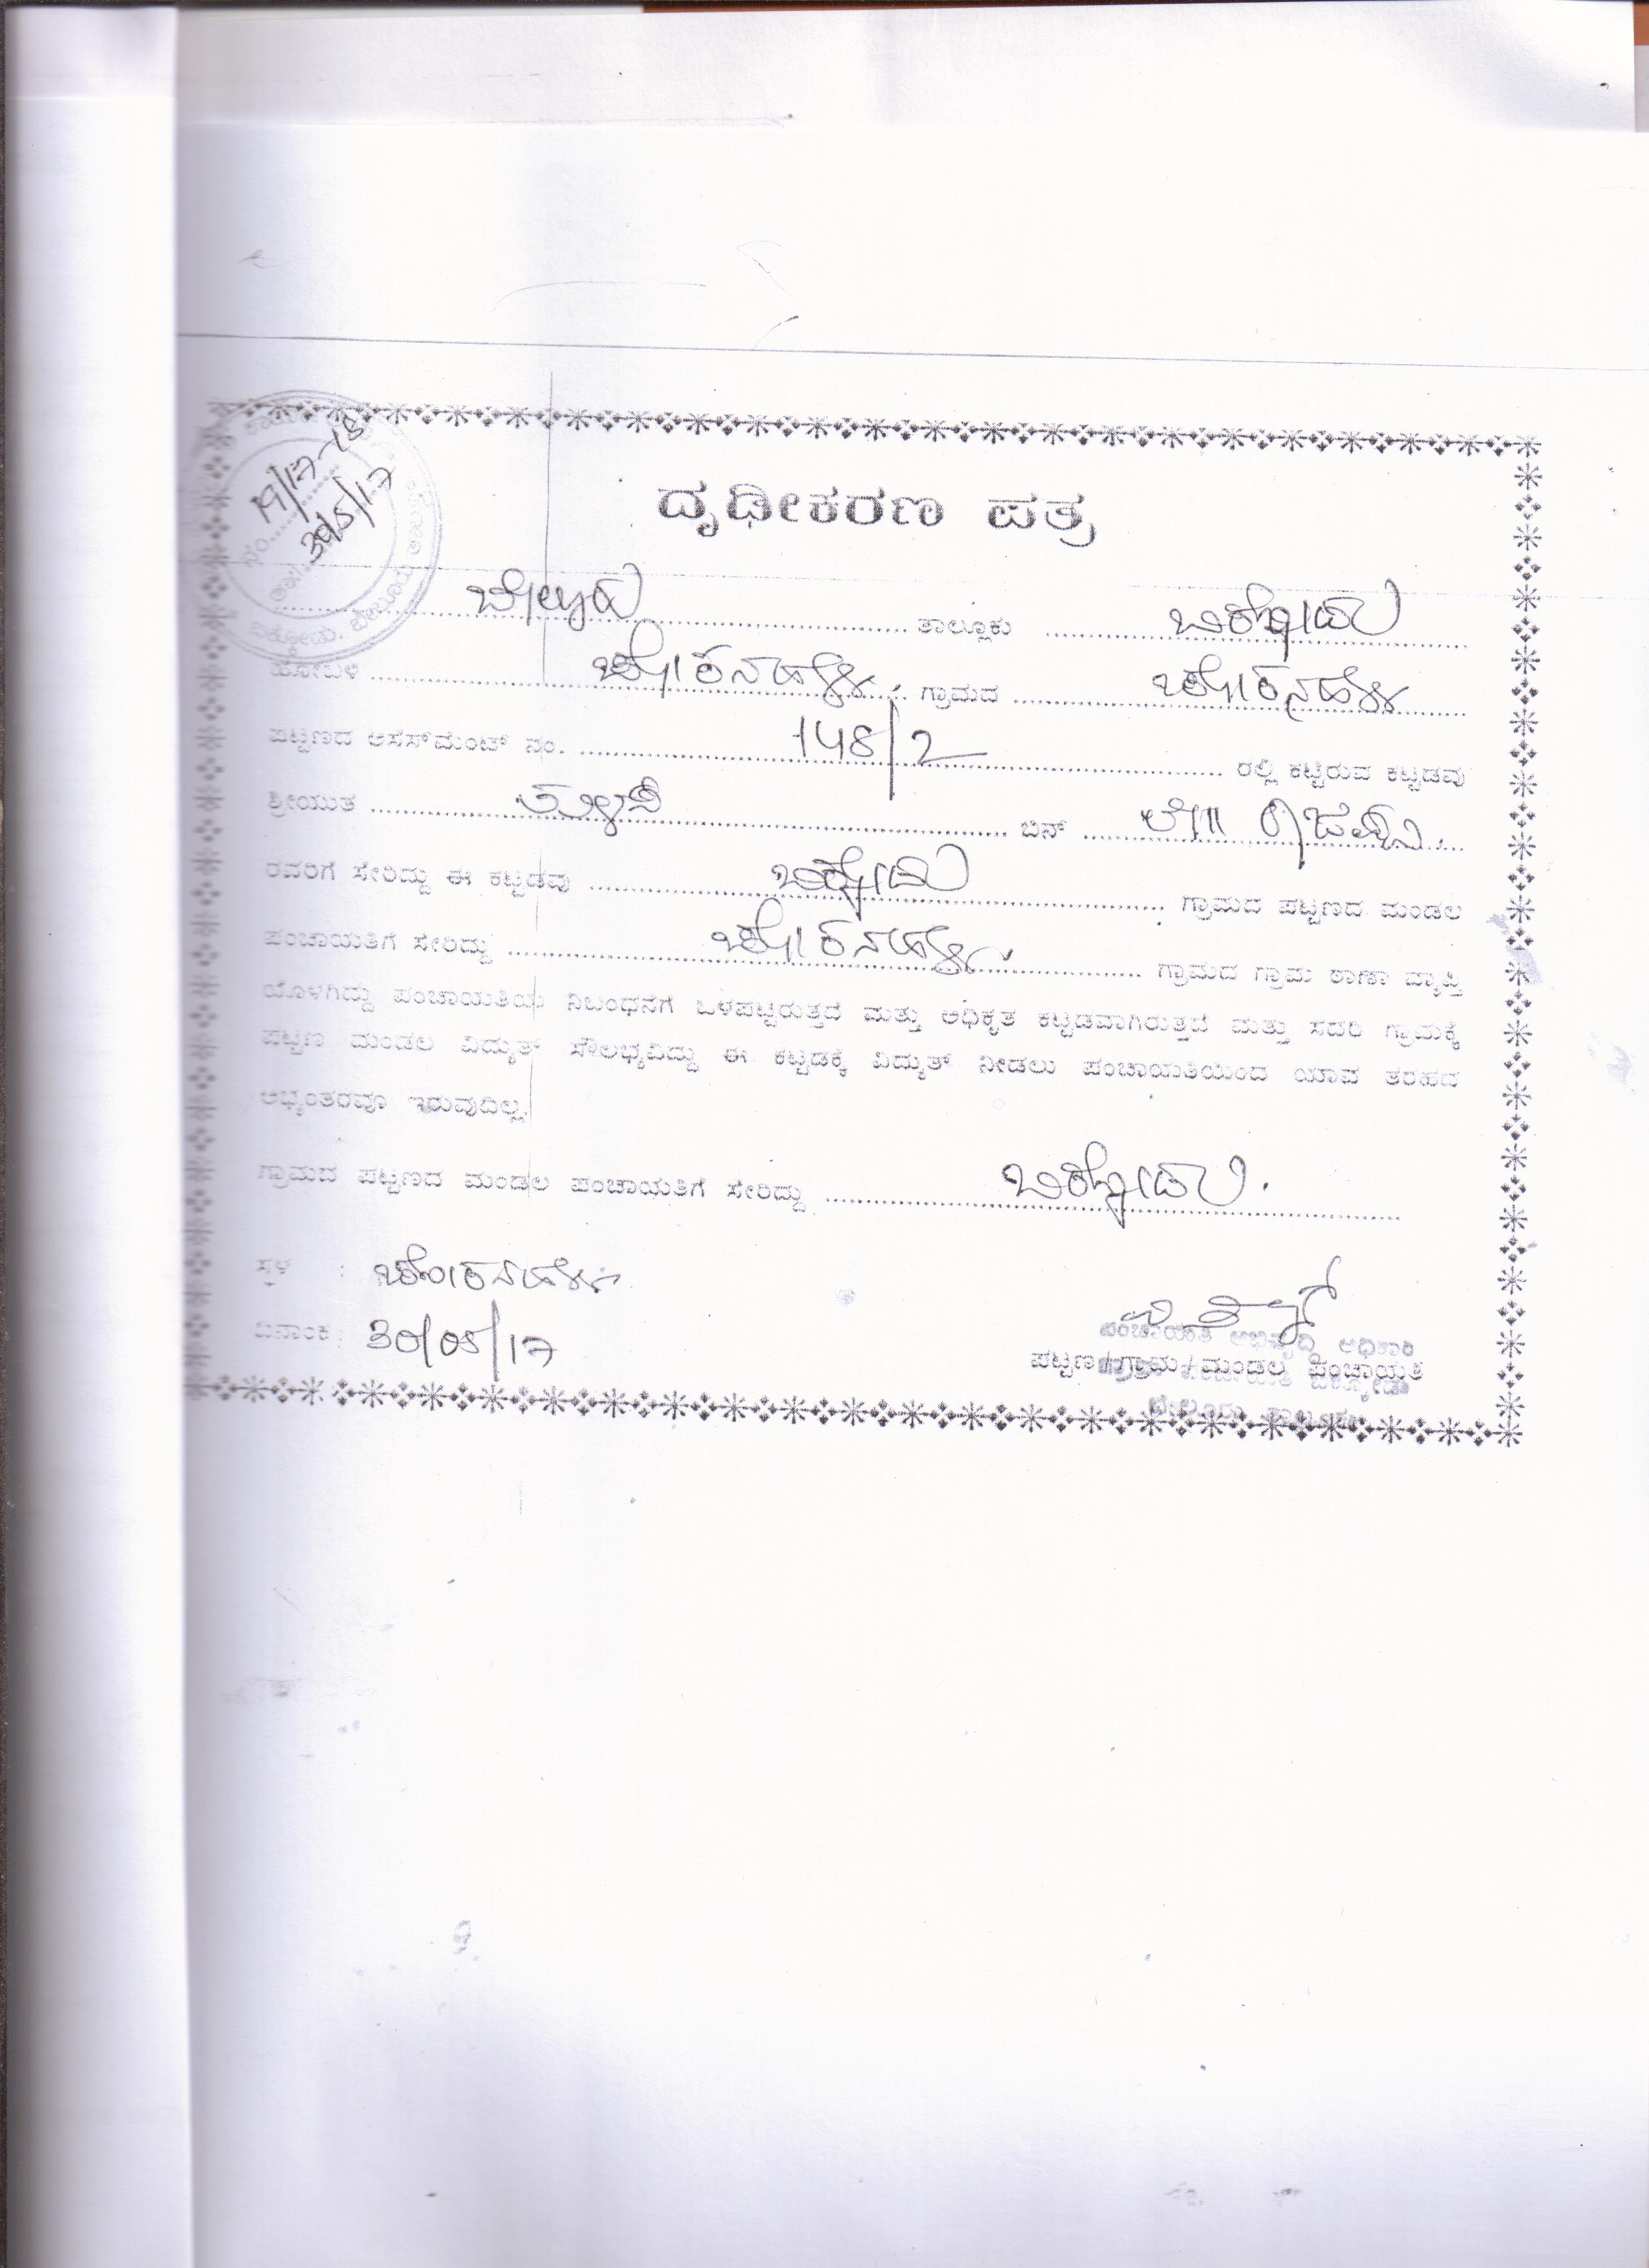 ನಂ. 19/17-18
ತಾ॥ 30/5/17
ದೃಢೀಕರಣ ಪತ್ರ
ಬೇಲೂರು ತಾಲ್ಲೂಕು ಬಿಕ್ಕೋಡು
ಹೋಬಳಿ ಗ್ರಾಮದ
ಪಟ್ಟಣದ ಅಸೆಸ್‌ಮೆಂಟ್ ನಂ. 148/2 ರಲ್ಲಿ ಕಟ್ಟಿರುವ ಕಟ್ಟಡವು
ಶ್ರೀಯುತ ಬಿನ್ ಲೇ॥
ರವರಿಗೆ ಸೇರಿದ್ದು ಈ ಕಟ್ಟಡವು ಬಿಕ್ಕೋಡು ಗ್ರಾಮದ ಪಟ್ಟಣದ ಮಂಡಲ
ಪಂಚಾಯತಿಗೆ ಸೇರಿದ್ದು ಗ್ರಾಮದ ಗ್ರಾಮ ಠಾಣಾ ವ್ಯಾಪ್ತಿ
ಯೊಳಗಿದ್ದು ಪಂಚಾಯತಿಯ ನಿಬಂಧನೆಗೆ ಒಳಪಟ್ಟಿರುತ್ತದೆ ಮತ್ತು ಅಧಿಕೃತ ಕಟ್ಟಡವಾಗಿರುತ್ತದೆ ಮತ್ತು ಸದರಿ ಗ್ರಾಮಕ್ಕೆ
ಪಟ್ಟಣ ಮಂಡಲ ವಿದ್ಯುತ್ ಸೌಲಭ್ಯವಿದ್ದು ಈ ಕಟ್ಟಡಕ್ಕೆ ವಿದ್ಯುತ್ ನೀಡಲು ಪಂಚಾಯತಿಯಿಂದ ಯಾವ ತರಹದ
ಅಭ್ಯಂತರವೂ ಇರುವುದಿಲ್ಲ.
ಗ್ರಾಮದ ಪಟ್ಟಣದ ಮಂಡಲ ಪಂಚಾಯತಿಗೆ ಸೇರಿದ್ದು ಬಿಕ್ಕೋಡು.
ಸ್ಥಳ :
ದಿನಾಂಕ : 30/05/17
ಪಂಚಾಯತಿ ಅಭಿವೃದ್ಧಿ ಅಧಿಕಾರಿ
ಪಟ್ಟಣ / ಗ್ರಾಮ / ಮಂಡಲ ಪಂಚಾಯತಿ
ಬೇಲೂರು ತಾಲ್ಲೂಕು